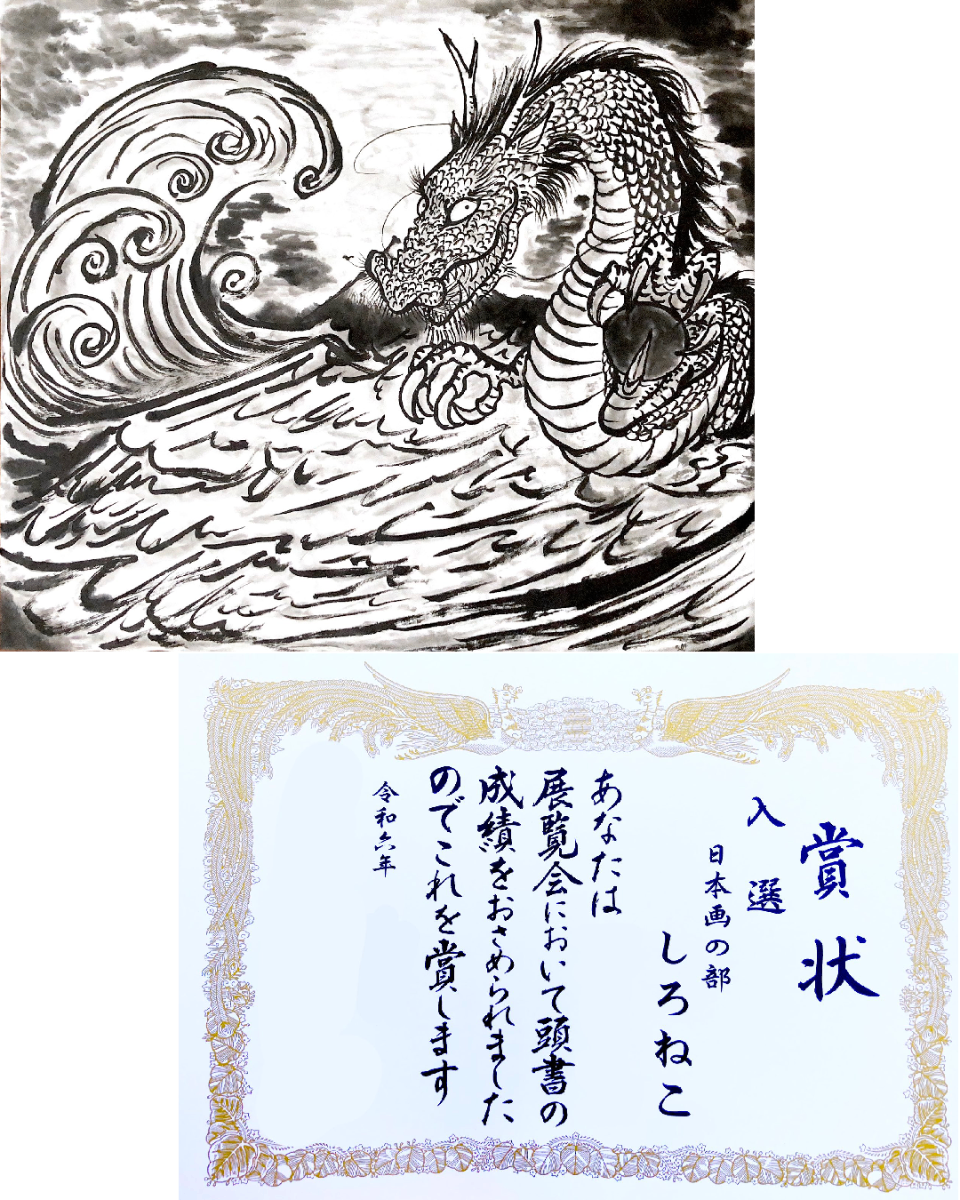 賞状
入選
日本画の部
しろねこ
あなたは
展覧会において頭書の
成績をおさめられました
のでこれを賞します
令和六年